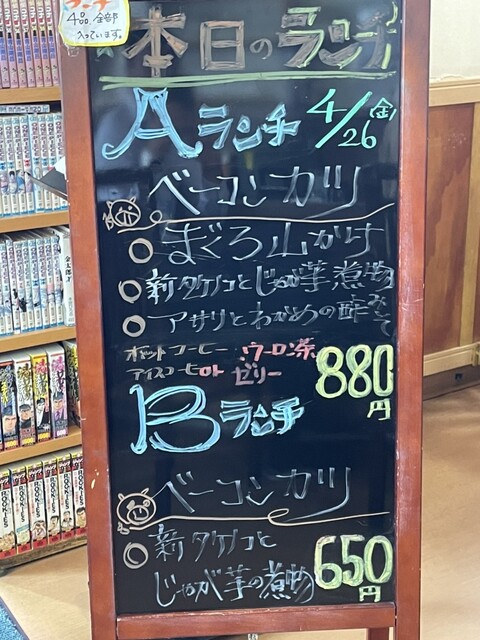 ランチ
4品、全部
入っています。
本日のランチ
Aランチ 4/26(金)
ベーコンカツ
○ まぐろ山かけ
○ 新タケノコとじゃが芋煮物
○ アサリとわかめの酢みそ
ホットコーヒー ウーロン茶
ゼリー
880円
Bランチ
ベーコンカツ
○ 新タケノコと
じゃが芋の煮物
650円
ROOKIES